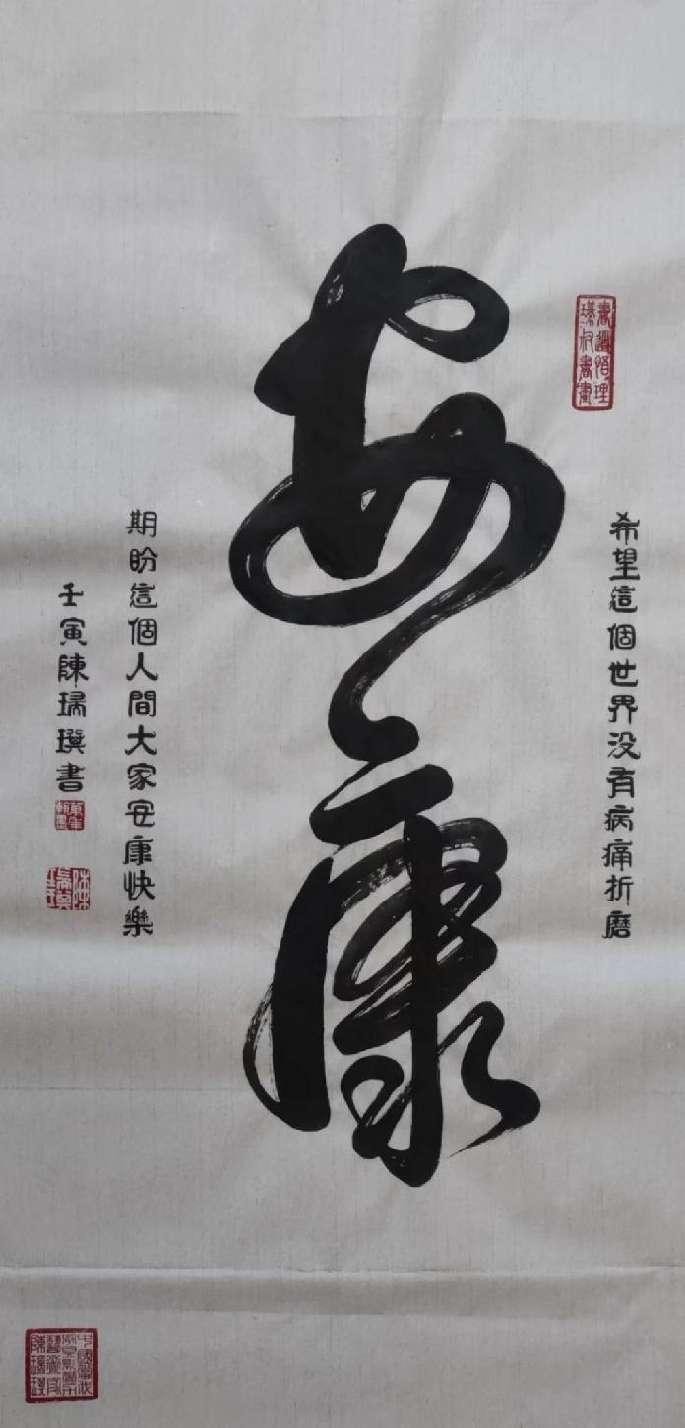 希望這個世界没有病痛折磨
安康
期盼這個人間大家安康快樂
壬寅陳瑞璵書